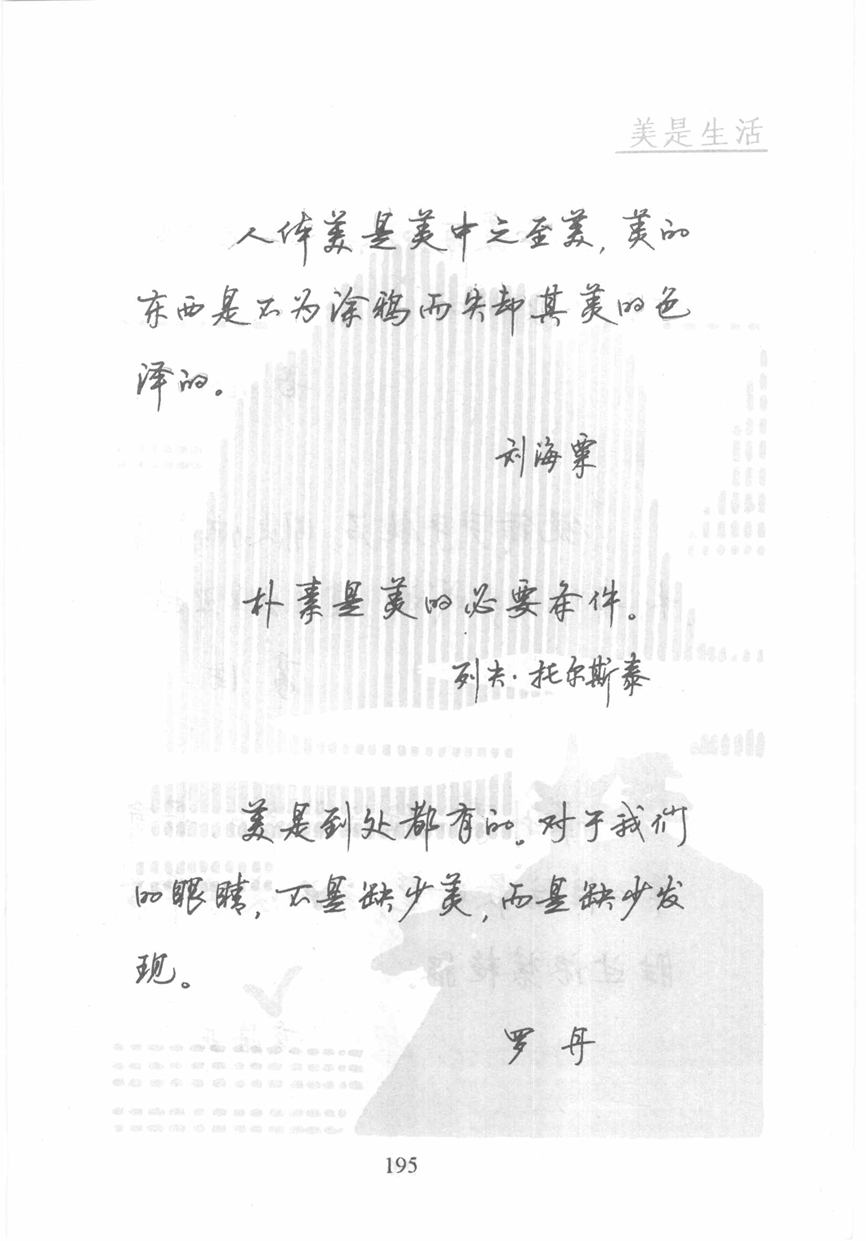 美是生活
人体美是美中之至美,美的
东西是不为涂鸦而失却其美的色
泽的。
刘海粟
朴素是美的必要条件。
列夫·托尔斯泰
美是到处都有的。对于我们
的眼睛,不是缺少美,而是缺少发
现。
罗丹
195